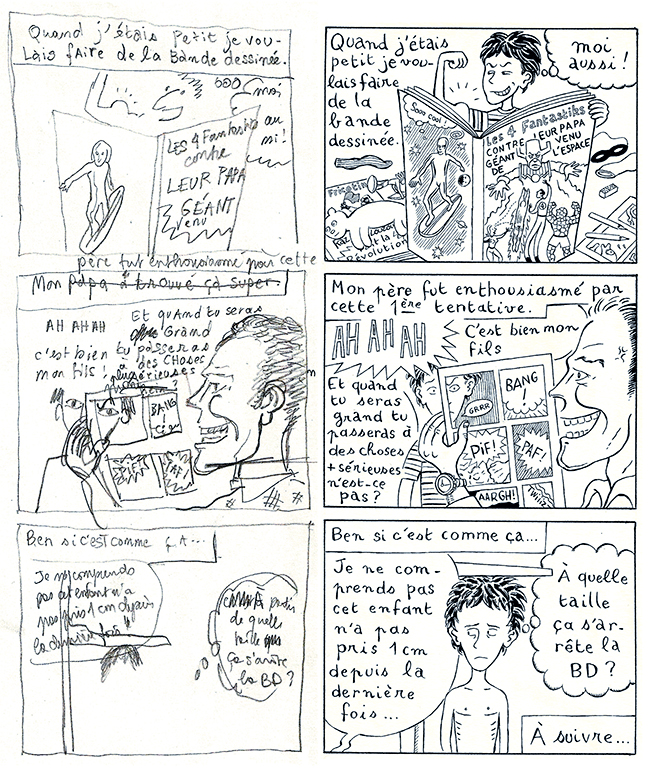 Quand j'étais petit je vou-
lais faire de la Bande dessinée.
moi
au
ssi!
LES 4 Fantastiks
contre
LEUR PAPA
GÉANT
venu
père fut enthousiasmé par cette
Mon papa a trouvé ça super.
AH AH AH
c'est bien
mon fils!
Et quand tu seras
Grand
tu passeras
à des CHOSES
sérieuses
BANG
PIF!
PAF!
Ben si c'est comme ça...
Je ne comprends
pas cet enfant n'a
pas pris 1 cm depuis
la dernière fois
à partir
de quelle
taille
ça s'arrête
la BD?
Quand j'étais
petit je vou-
lais faire
de la
bande
dessinée.
moi
aussi!
Sooo cool!
Les 4 Fantastiks
CONTRE LEUR PAPA
GÉANT VENU
DE L'ESPACE
Fricotin
la
Révolution
Mon père fut enthousiasmé par
cette 1ère tentative.
AH AH AH
C'est bien mon
fils
Et quand
tu seras
grand tu
passeras à
des choses
+ sérieuses
n'est-ce
pas?
GRRR
BANG
!
PIF!
PAF!
AARGH!
TWIZZ
Ben si c'est comme ça...
Je ne com-
prends pas
cet enfant
n'a pas
pris 1 cm
depuis la
dernière
fois...
À quelle
taille
ça s'ar-
rête la
BD?
À suivre...